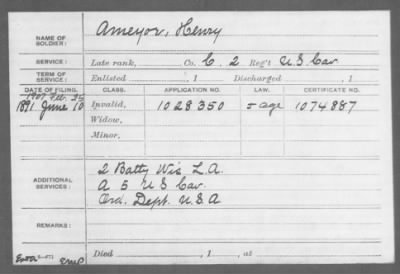 NAME OF SOLDIER: Ameyor, Henry
SERVICE: Late rank, Co. C, 2 Reg't U.S. Cav.
TERM OF SERVICE: Enlisted , 1 Discharged , 1
DATE OF FILING. CLASS. APPLICATION NO. LAW. CERTIFICATE NO.
1907 Feb. 25
1891 June 10 Invalid, 1028350 age 1074887
Widow,
Minor,
ADDITIONAL SERVICES: 2 Batty Wis L.A.
A 5 U S Cav.
Ord. Dept. U.S.A
REMARKS:
Died , 1 , at